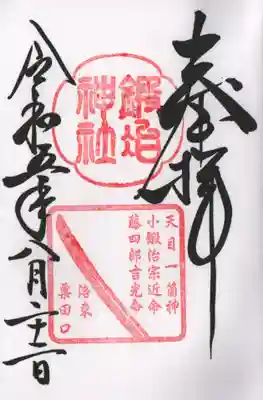 奉拝
鍛冶神社
天目一箇神
小鍛治宗近命
藤四郎吉光命
洛東
粟田口
令和五年八月二十一日